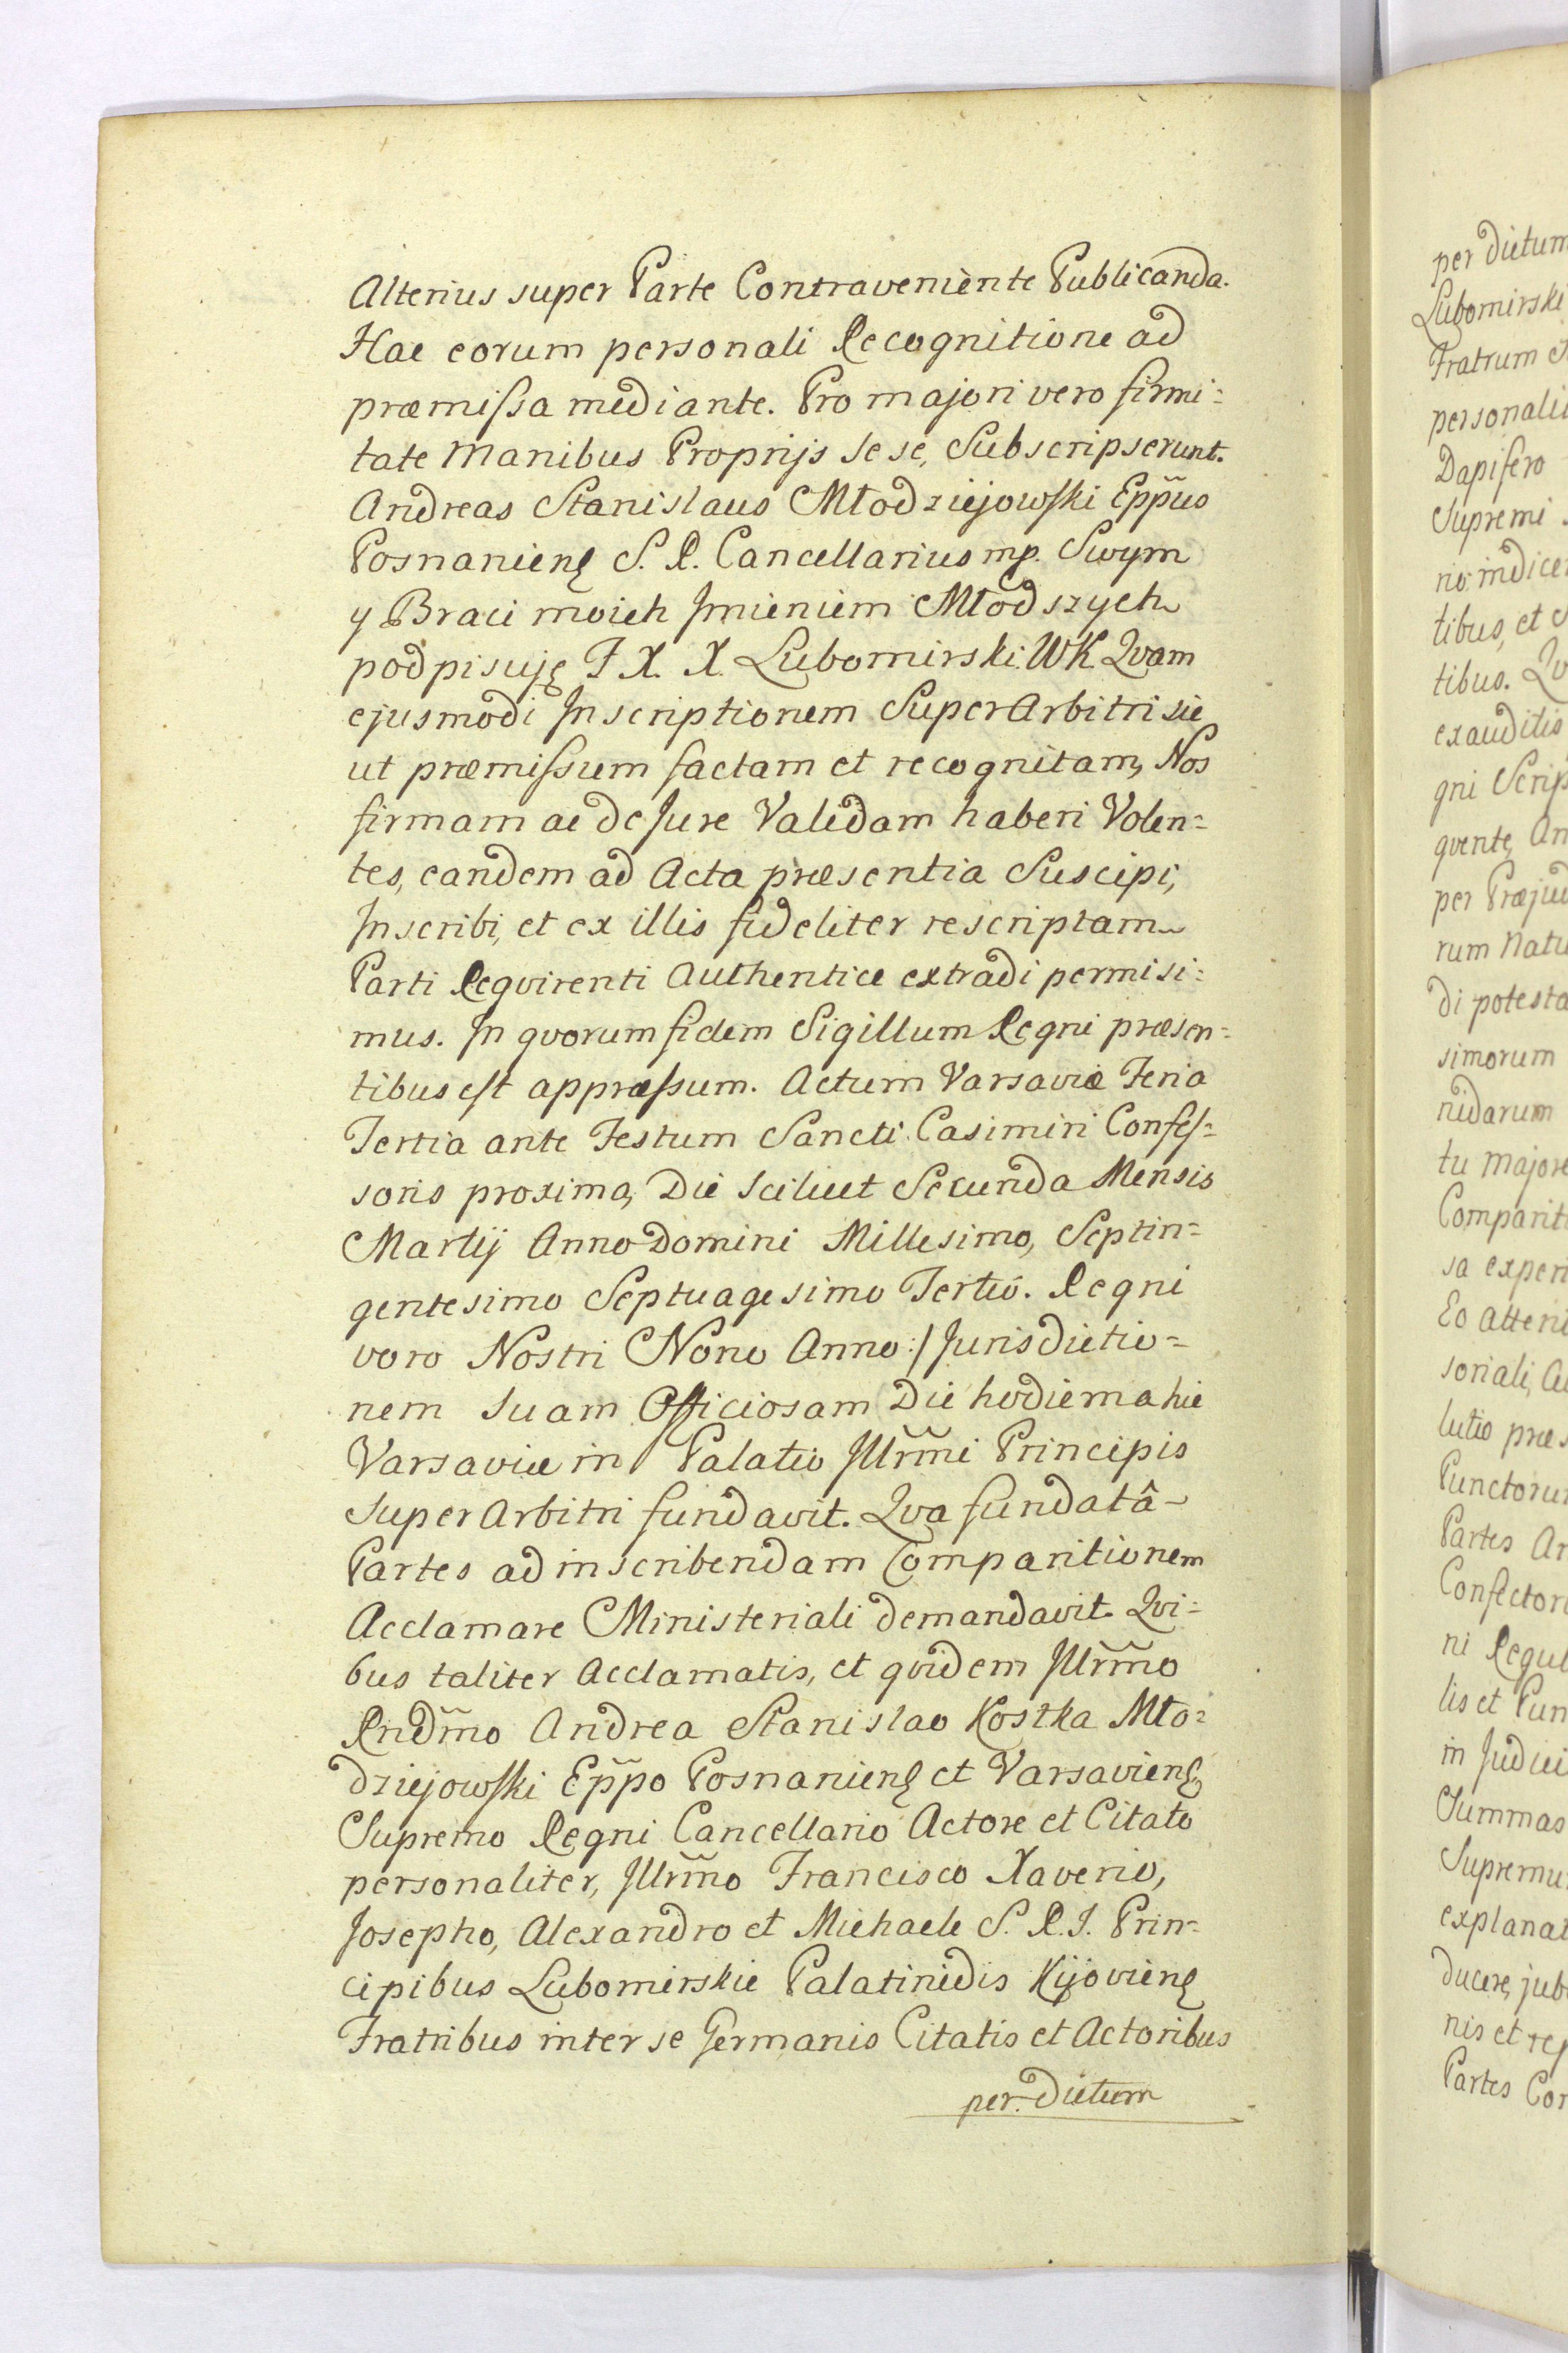 Alterius super Parte Contraveniente Publicanda.
Hac eorum personali Recognitione ad
præmissa mediante. Pro majori vero firmi=
tate Manibus Proprijs sese, Subscripserunt.
Andreas Stanislaus Młodziejowski Eppus
Posnaniens S. R. Cancellarius mp. Swym
y Braci moich Imieniem Młodszych
podpisuję F X. X. Lubomirski. WK Qvam
ejusmodi Inscriptionem SuperArbitri sic
ut præmissum factam et recognitam, Nos
firmam ac de Jure Validam haberi Volen=
tes, eandem ad Acta præsentia Suscipi,
Inscribi, et ex illis fideliter rescriptam
Parti Reqvirenti Authentice extradi permisi=
mus. In qvorum fidem Sigillum Regni præsen=
tibus est appræssum. Actum Varsaviæ Feria
Tertia ante Festum Sancti Casimiri Confes=
soris proxima, Die scilicet Secunda Mensis
Martij Anno Domini Millesimo, Septin=
gentesimo Septuagesimo Tertiô. Regni
voro Nostri Nono Anno :/ Jurisdictio=
nem suam Officiosam Die hodierna hic
Varsaviæ in Palatio Illrmi Principis
SuperArbitri fundavit. Qva fundatâ
Partes ad inscribendam Comparitionem
Acclamare Ministeriali demandavit. Qvi=
bus taliter Acclamatis, et qvidem Illrmo
Rndmo Andrea Stanislao Kostka Mło=
dziejowski Eppo Posnaniens et Varsaviens,
Supremo Regni Cancellario Actore et Citato
personaliter, Illrmo Francisco Xaverio,
Josepho, Alexandro et Michaele S. R. I. Prin=
cipibus Lubomirskie Palatinidis Kijoviens
Fratribus inter se Germanis Citatis et Actoribus
per dictum
per dictum
Lubomirski
Fratrum
Dapifero
Supremi
tibus, et
tibus.
exauditis
gni
qvente,
rum
di
simorum
nidarum
tu Majore
lutio
Partes
ni
lis et
in
Summas
ducere,
nis et
Partes